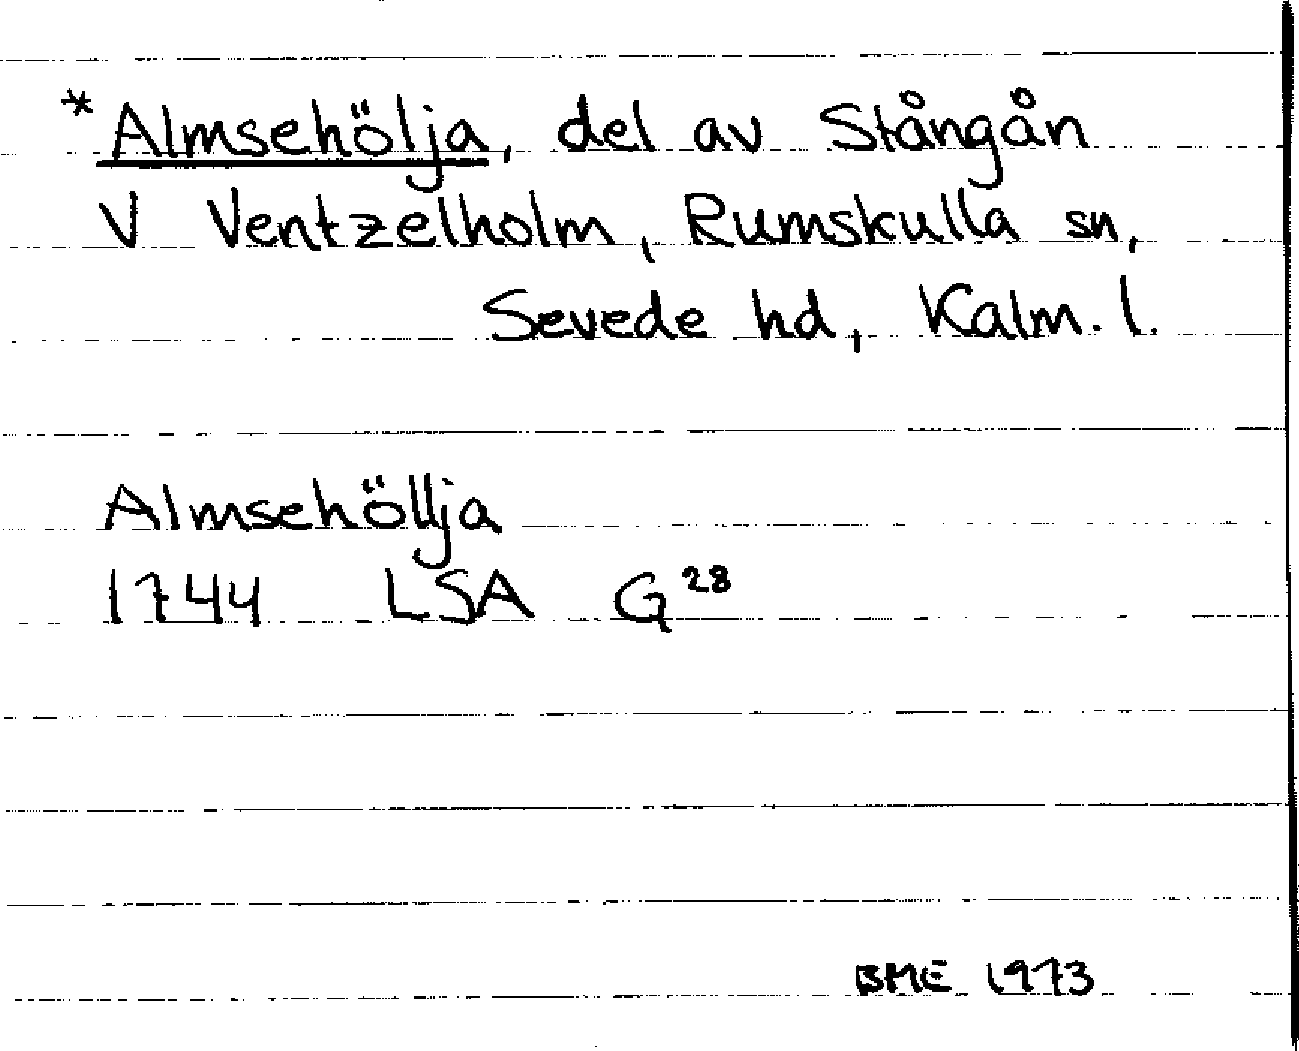 *Almsehölja, del av Stångån
V Ventzelholm, Rumskulla sn,
Sevede hd, Kalm. l.
Almsehöllja
1744 LSA G28
BME 1973